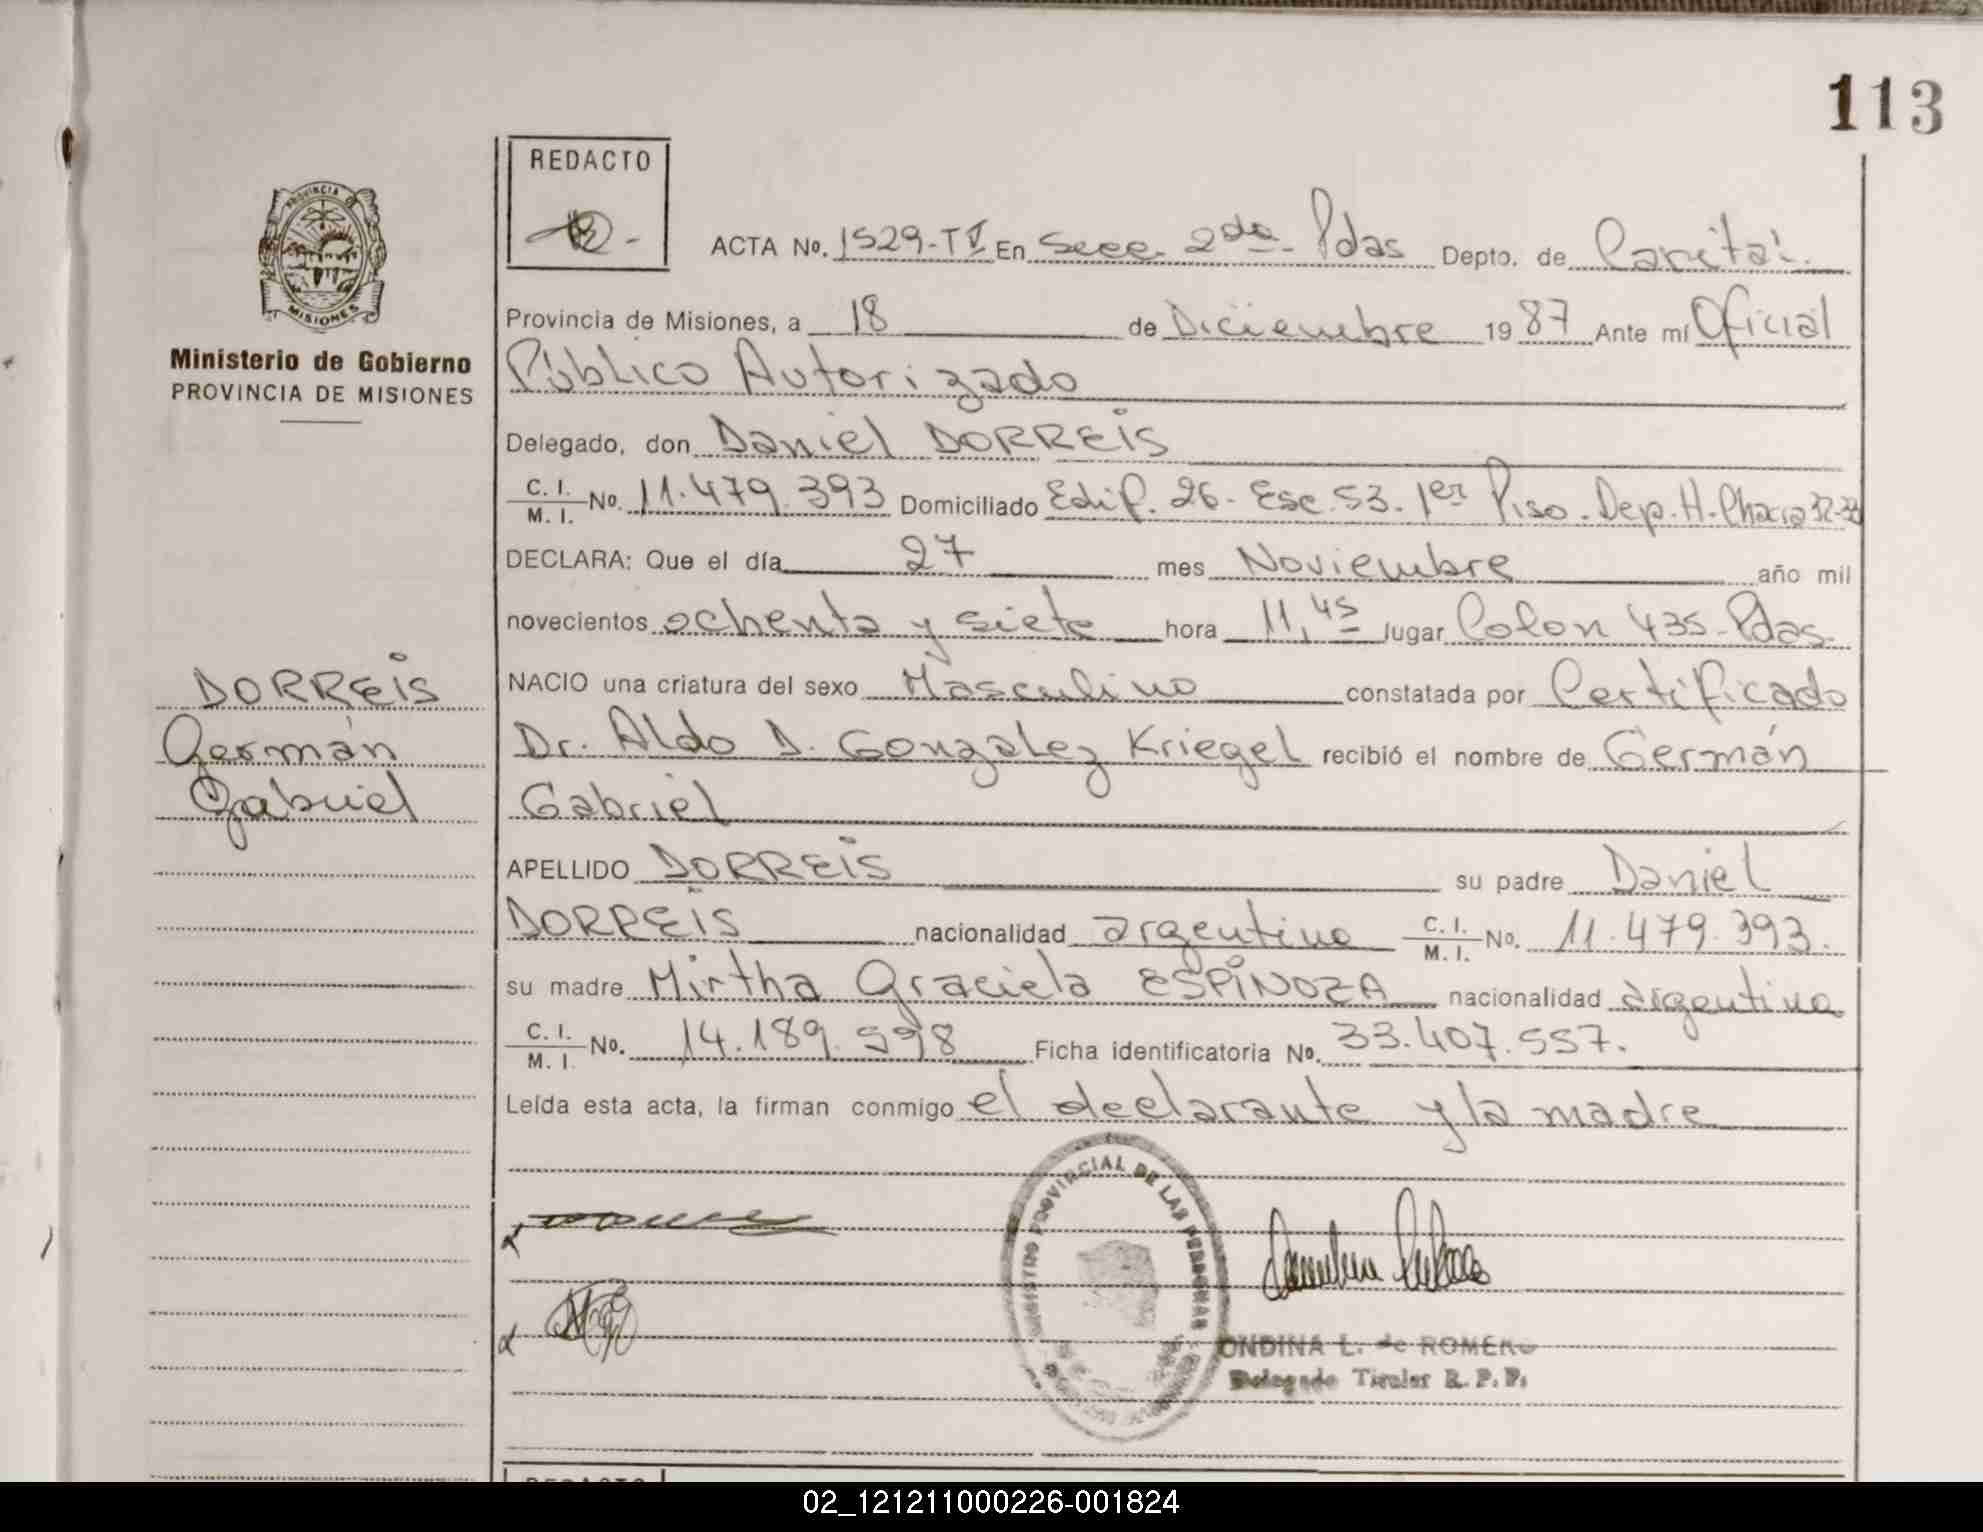 113
REDACTO
PROVINCIA DE
MISIONES
Ministerio de Gobierno
PROVINCIA DE MISIONES
ACTA No. 1529-TV En Secc. 2da. Pdas Depto. de Capital.
Provincia de Misiones, a 18 de Diciembre 19 87 Ante mí Oficial
Público Autorizado
Delegado, don Daniel DORREIS
C. I. M. I. No. 11.479.393 Domiciliado Edif. 26 - Esc. 53. 1er Piso. Dep. H. Chacra 32-33
DECLARA: Que el día 27 mes Noviembre año mil
novecientos ochenta y siete hora 11,45 lugar Colon 435 - Pdas.
NACIO una criatura del sexo Masculino constatada por Certificado
Dr. Aldo D. Gonzalez Kriegel recibió el nombre de Germán
Gabriel
DORREIS
Germán
Gabriel
APELLIDO DORREIS su padre Daniel
DORREIS nacionalidad argentino C. I. M. I. No. 11.479.393.
su madre Mirtha Graciela ESPINOZA nacionalidad argentina
C. I. M. I. No. 14.189.998 Ficha identificatoria No. 33.407.557.
Leída esta acta, la firman conmigo el declarante y la madre
REGISTRO PROVINCIAL DE LAS PERSONAS
ONDINA L. de ROMERO
Delegado Titular R. P. P.
REDACTO
02_121211000226-001824